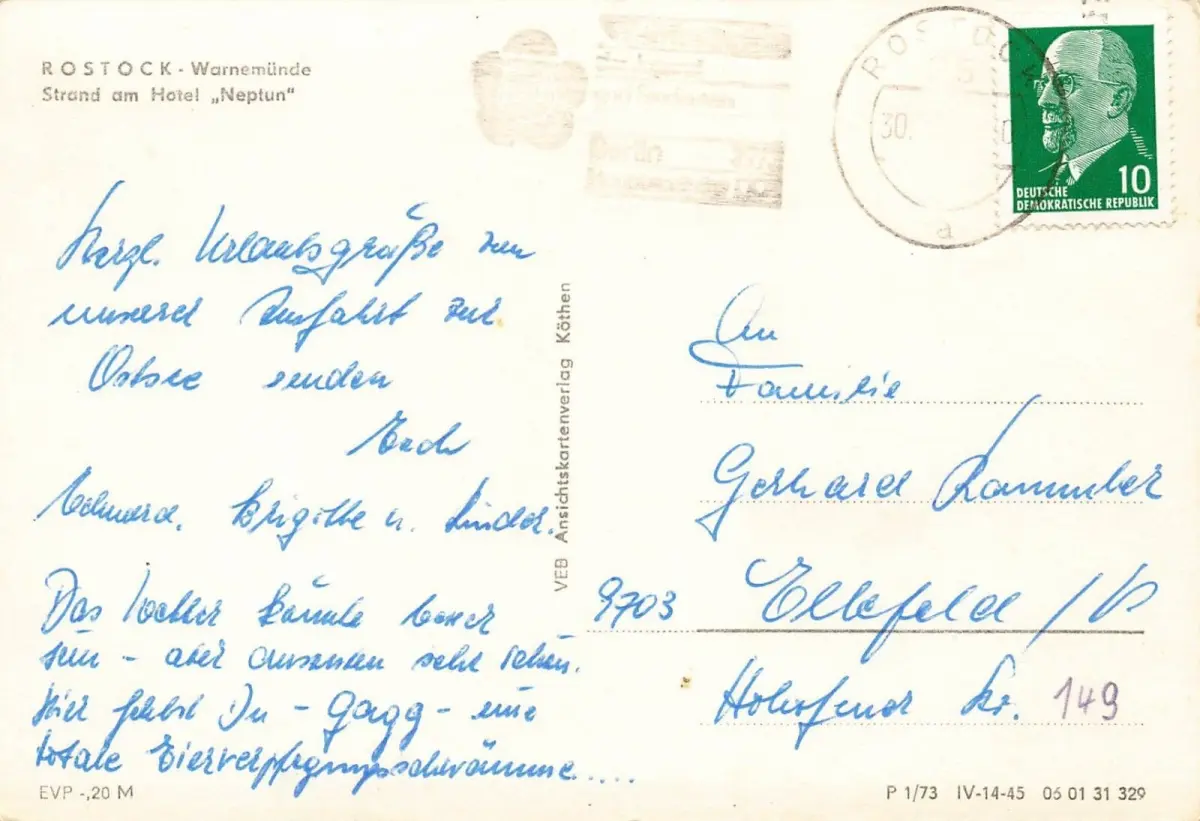 ROSTOCK - Warnemünde
Strand am Hotel „Neptun"
ROSTOCK
30.
a
10
DEUTSCHE
DEMOKRATISCHE REPUBLIK
Herzl. Urlaubsgrüße von
unserer zur
Ostsee senden
Euch
Brigitte u. Kinder.
Das Wetter könnte besser
sein – aber ansonsten sehr schön.
Hier fehlst Du – Gagg – eine
totale
VEB Ansichtskartenverlag Köthen
An
Familie
Gerhard
9703 Ellefeld /V
Hohofener Str. 149
EVP -,20 M
P 1/73 IV-14-45 06 01 31 329